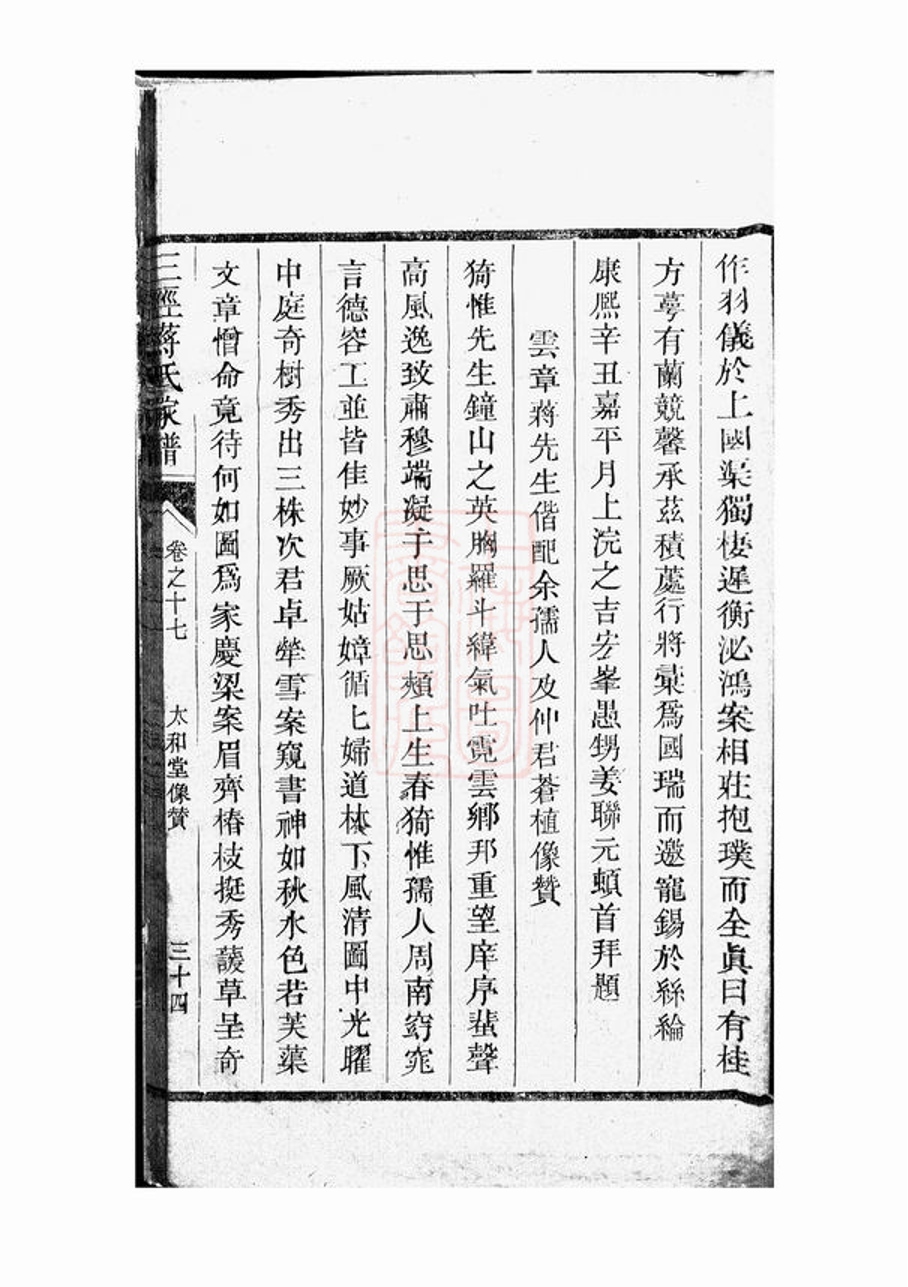 作羽儀於上國渠獨棲遲衡泌鴻案相莊抱璞而全眞曰有桂
方蕚有蘭競馨承茲積蘽行將彙爲國瑞而邀寵錫於絲綸
康熈辛丑嘉平月上浣之吉宏峯愚甥姜聯元頓首拜題
雲章蔣先生偕配余孺人及仲君蒼植像贊
猗惟先生鐘山之英胸羅斗緯氣吐霓雲鄉邦重望庠序蜚聲
高風逸致肅穆端凝于思于思頰上生春猗惟孺人周南窈窕
言德容工並皆佳妙事厥姑嫜循匕婦道林下風清圖中光耀
中庭奇樹秀出三株次君卓犖雪案窺書神如秋水色若芙蕖
文章憎命竟待何如圖爲家慶梁案眉齊椿枝挺秀諼草呈奇
三徑蔣氏家譜
卷之十七
太和堂像贊
三十四